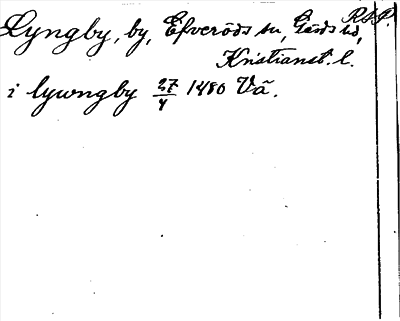 Lyngby, by, Efveröds sn, Gärds hd,
Kristianst. l.
i lywngby 27/4 1480 Vä.